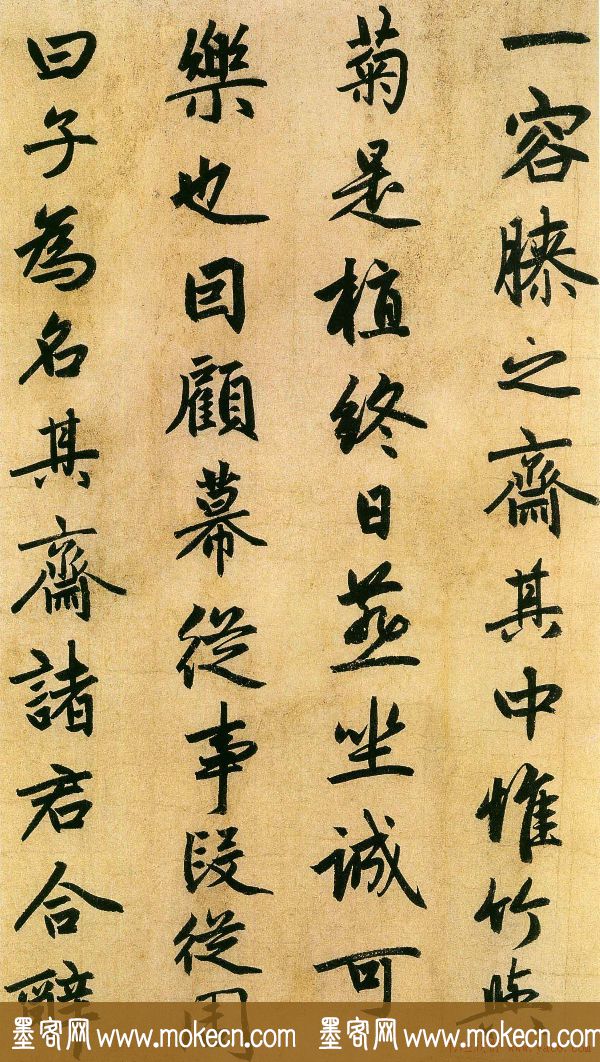 一容膝之齋其中惟竹與
菊是植終日燕坐誠可
樂也囙顧幕從事段從周
曰子為名其齋諸君合辭
墨客网 www.mokecn.com 墨客网 www.mokecn.com